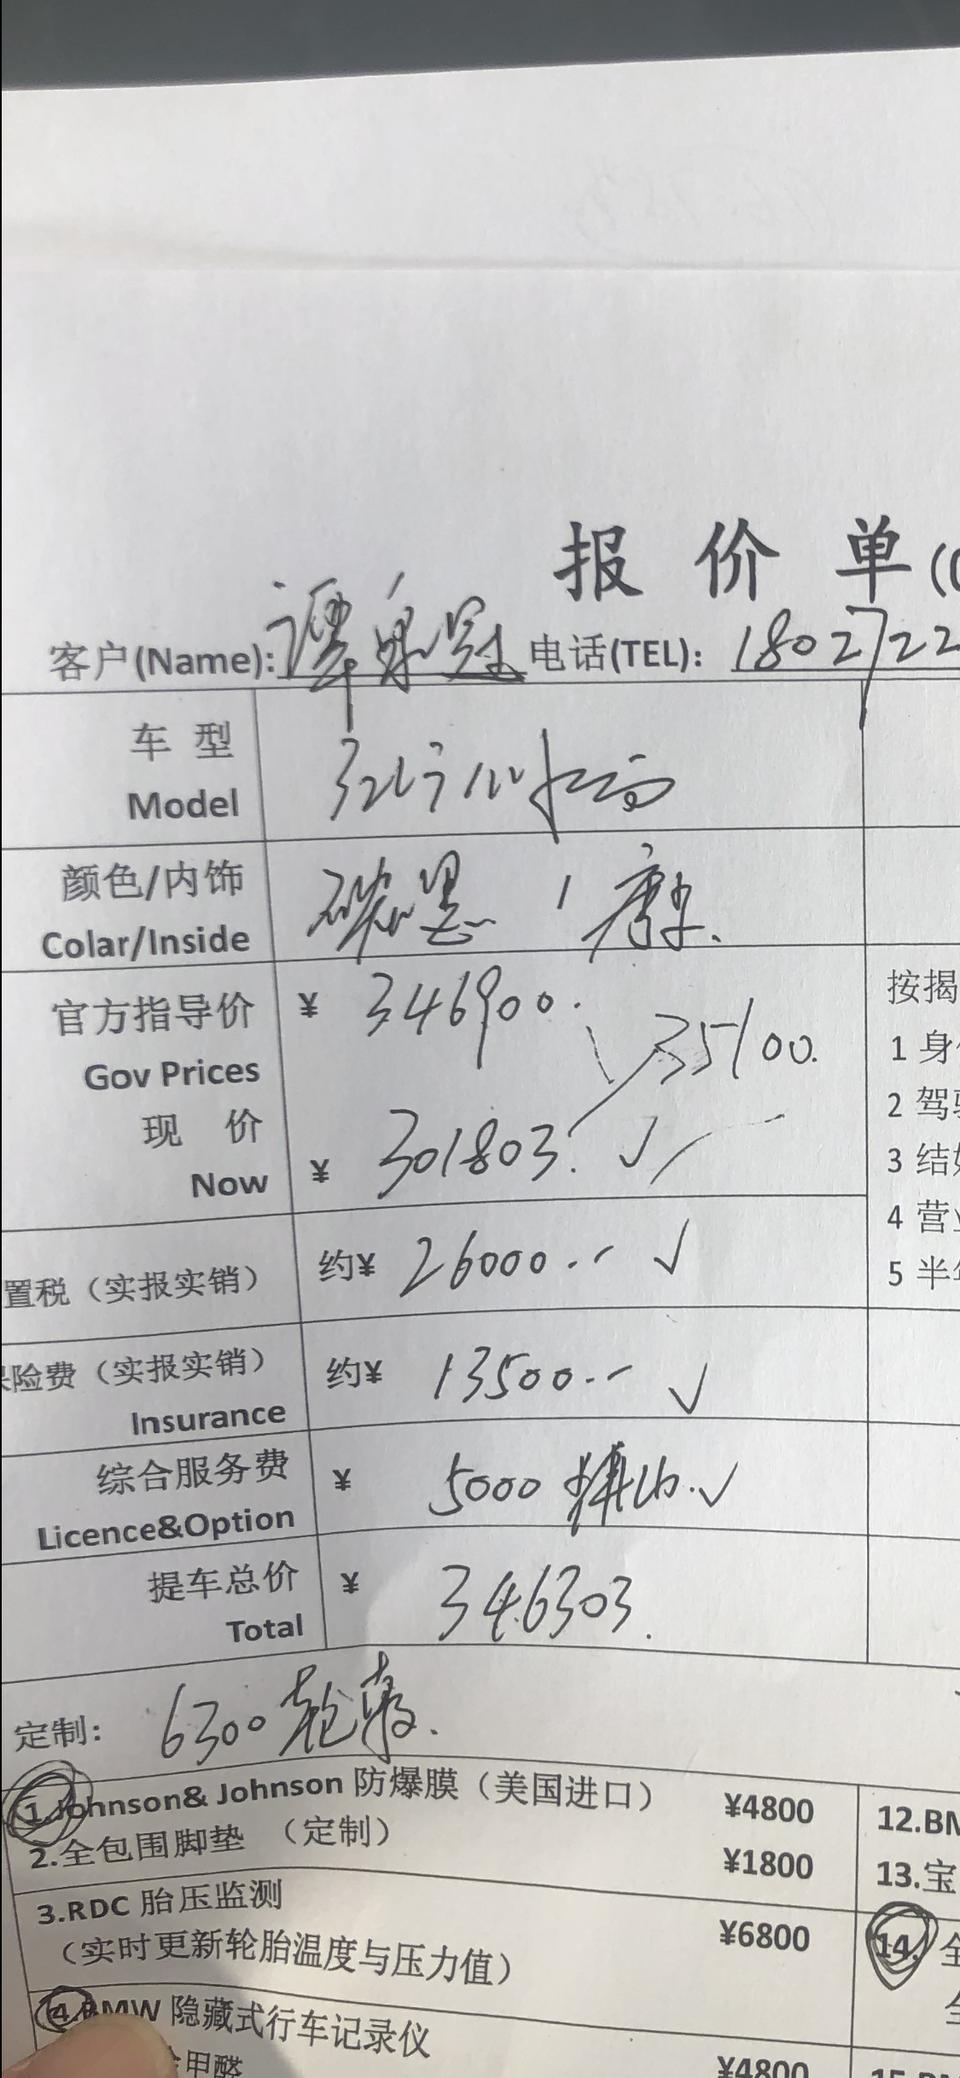 报价单(
客户(Name): 谭 冠 电话(TEL): 1802722
车型
Model
颜色/内饰 碳黑 / 摩卡.
Colar/Inside
官方指导价 ¥ 346900.
35100.
Gov Prices
现 价
Now ¥ 301803. ✓
置税（实报实销） 约¥ 26000.-- ✓
险费（实报实销） 约¥ 13500.-- ✓
Insurance
综合服务费 ¥ 5000 ✓
Licence&Option
提车总价 ¥ 346303.
Total
按揭
1 身
2 驾
3 结
4 营
5 半
定制: 6300 轮毂.
1.Johnson& Johnson 防爆膜（美国进口） ¥4800
2.全包围脚垫 （定制） ¥1800
3.RDC 胎压监测
（实时更新轮胎温度与压力值） ¥6800
4.BMW 隐藏式行车记录仪
甲醛 ¥4800
12.BM
13.宝
14. 全